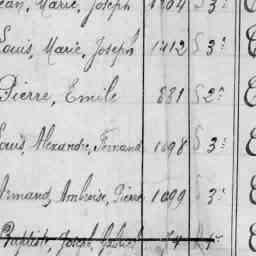 Jean, Marie, Joseph 1804 S 3e
Louis, Marie, Joseph 1412 S 3e
Pierre, Emile 881 S 2e
Louis, Alexandre, Fernand 1098 S 3e
Armand, Ambroise, Pierre 1099 S 3e
Baptiste, Joseph, Gabriel 74